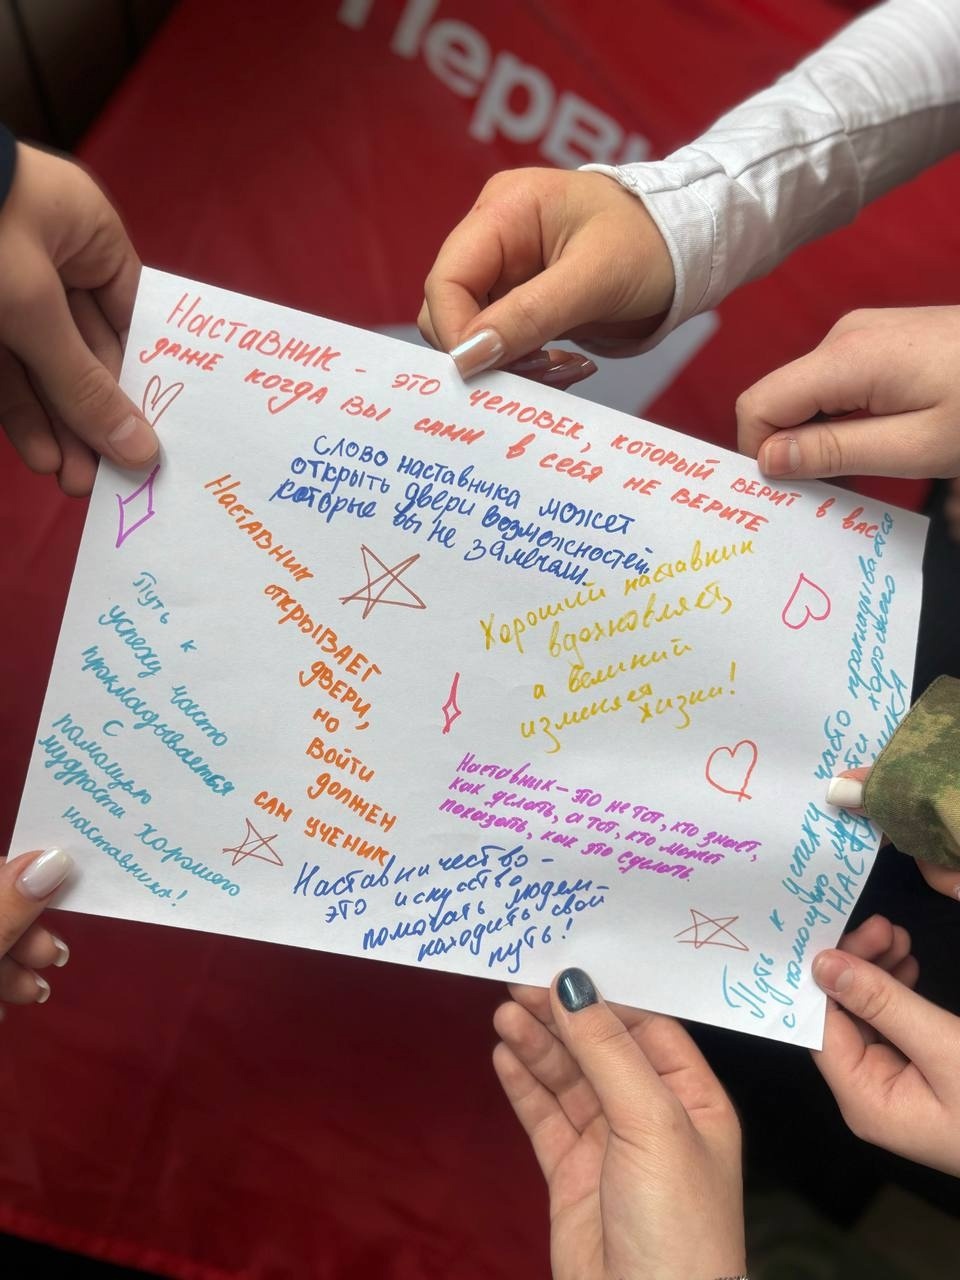 Перв
Наставник - это человек, который верит в вас
даже когда вы сами в себя не верите
Слово наставника может
открыть двери возможностей,
которые вы не замечали.
Наставник
открывает
двери,
но
войти
должен
сам ученик
Хороший наставник
вдохновляет,
а великий
изменяет
жизни!
Путь к
успеху часто
прокладывается
с
помощью
мудрости хорошего
наставника!
Наставник - это не тот, кто знает,
как делать, а тот, кто может
показать, как это сделать.
Наставничество -
это искусство
помогать людям -
находить свой
путь!
Путь к успеху часто прокладывается
с помощью мудрости хорошего
НАСТАВНИКА